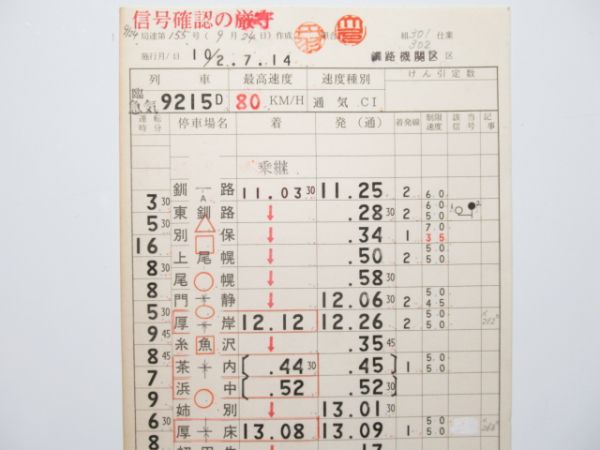 信号確認の厳守
局達第155号(9月24日)作成
組301仕業
302
施行月/日 10/2.7.14 釧路機関区 区
列車 最高速度 速度種別 けん引定数
臨
急気 9215D 80 KM/H 通気 CI
運転時分 停車場名 着 発(通) 着発線 制限速度 該当信号 記事
乗継
釧路 11.03 30 11.25 2 60
A
3 30 東釧路 ↓ .28 30 2 60 50
5 30 別保 ↓ .34 1 70 35
16 上尾幌 ↓ .50 2 50 50
8 30 尾幌 ↓ .58 30
8 30 門静 ↓ 12.06 30 2 50 45
5 30 厚岸 12.12 12.26 2 50 50
9 45 糸魚沢 ↓ .35 45
8 45 茶内 [.44 30 .45] 1 50 50
7 浜中 [.52 .52 30]
9 姉別 ↓ 13.01 30
6 30 厚床 13.08 13.09 1 50 50
8